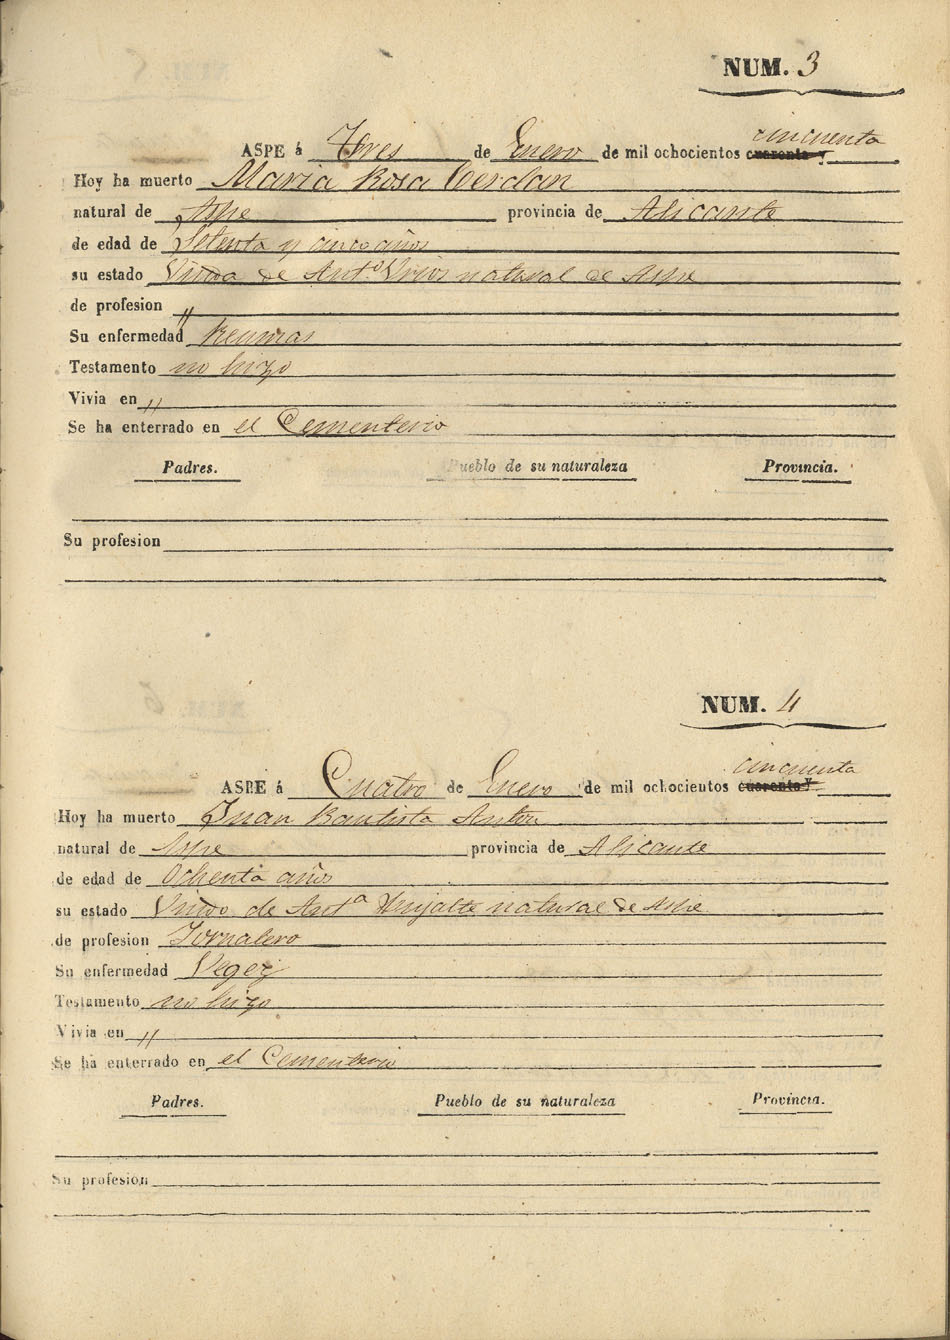 NUM. 3
cincuenta
ASPE á Tres de Enero de mil ochocientos cuarenta y
Hoy ha muerto Maria Rosa Cerdan
natural de Aspe provincia de Alicante
de edad de Setenta y cinco años
su estado Viuda de Antº Urios natural de Aspe
de profesion "
Su enfermedad Reumas
Testamento no hizo
Vivia en "
Se ha enterrado en el Cementerio
Padres. Pueblo de su naturaleza Provincia.
Su profesion
NUM. 4
cincuenta
ASPE á Cuatro de Enero de mil ochocientos cuarenta y
Hoy ha muerto Juan Bautista Anton
natural de Aspe provincia de Alicante
de edad de Ochenta años
su estado Viudo de Antª natural de Aspe
de profesion Jornalero
Su enfermedad Vegez
Testamento no hizo
Vivia en "
Se ha enterrado en el Cementerio
Padres. Pueblo de su naturaleza Provincia.
Su profesion